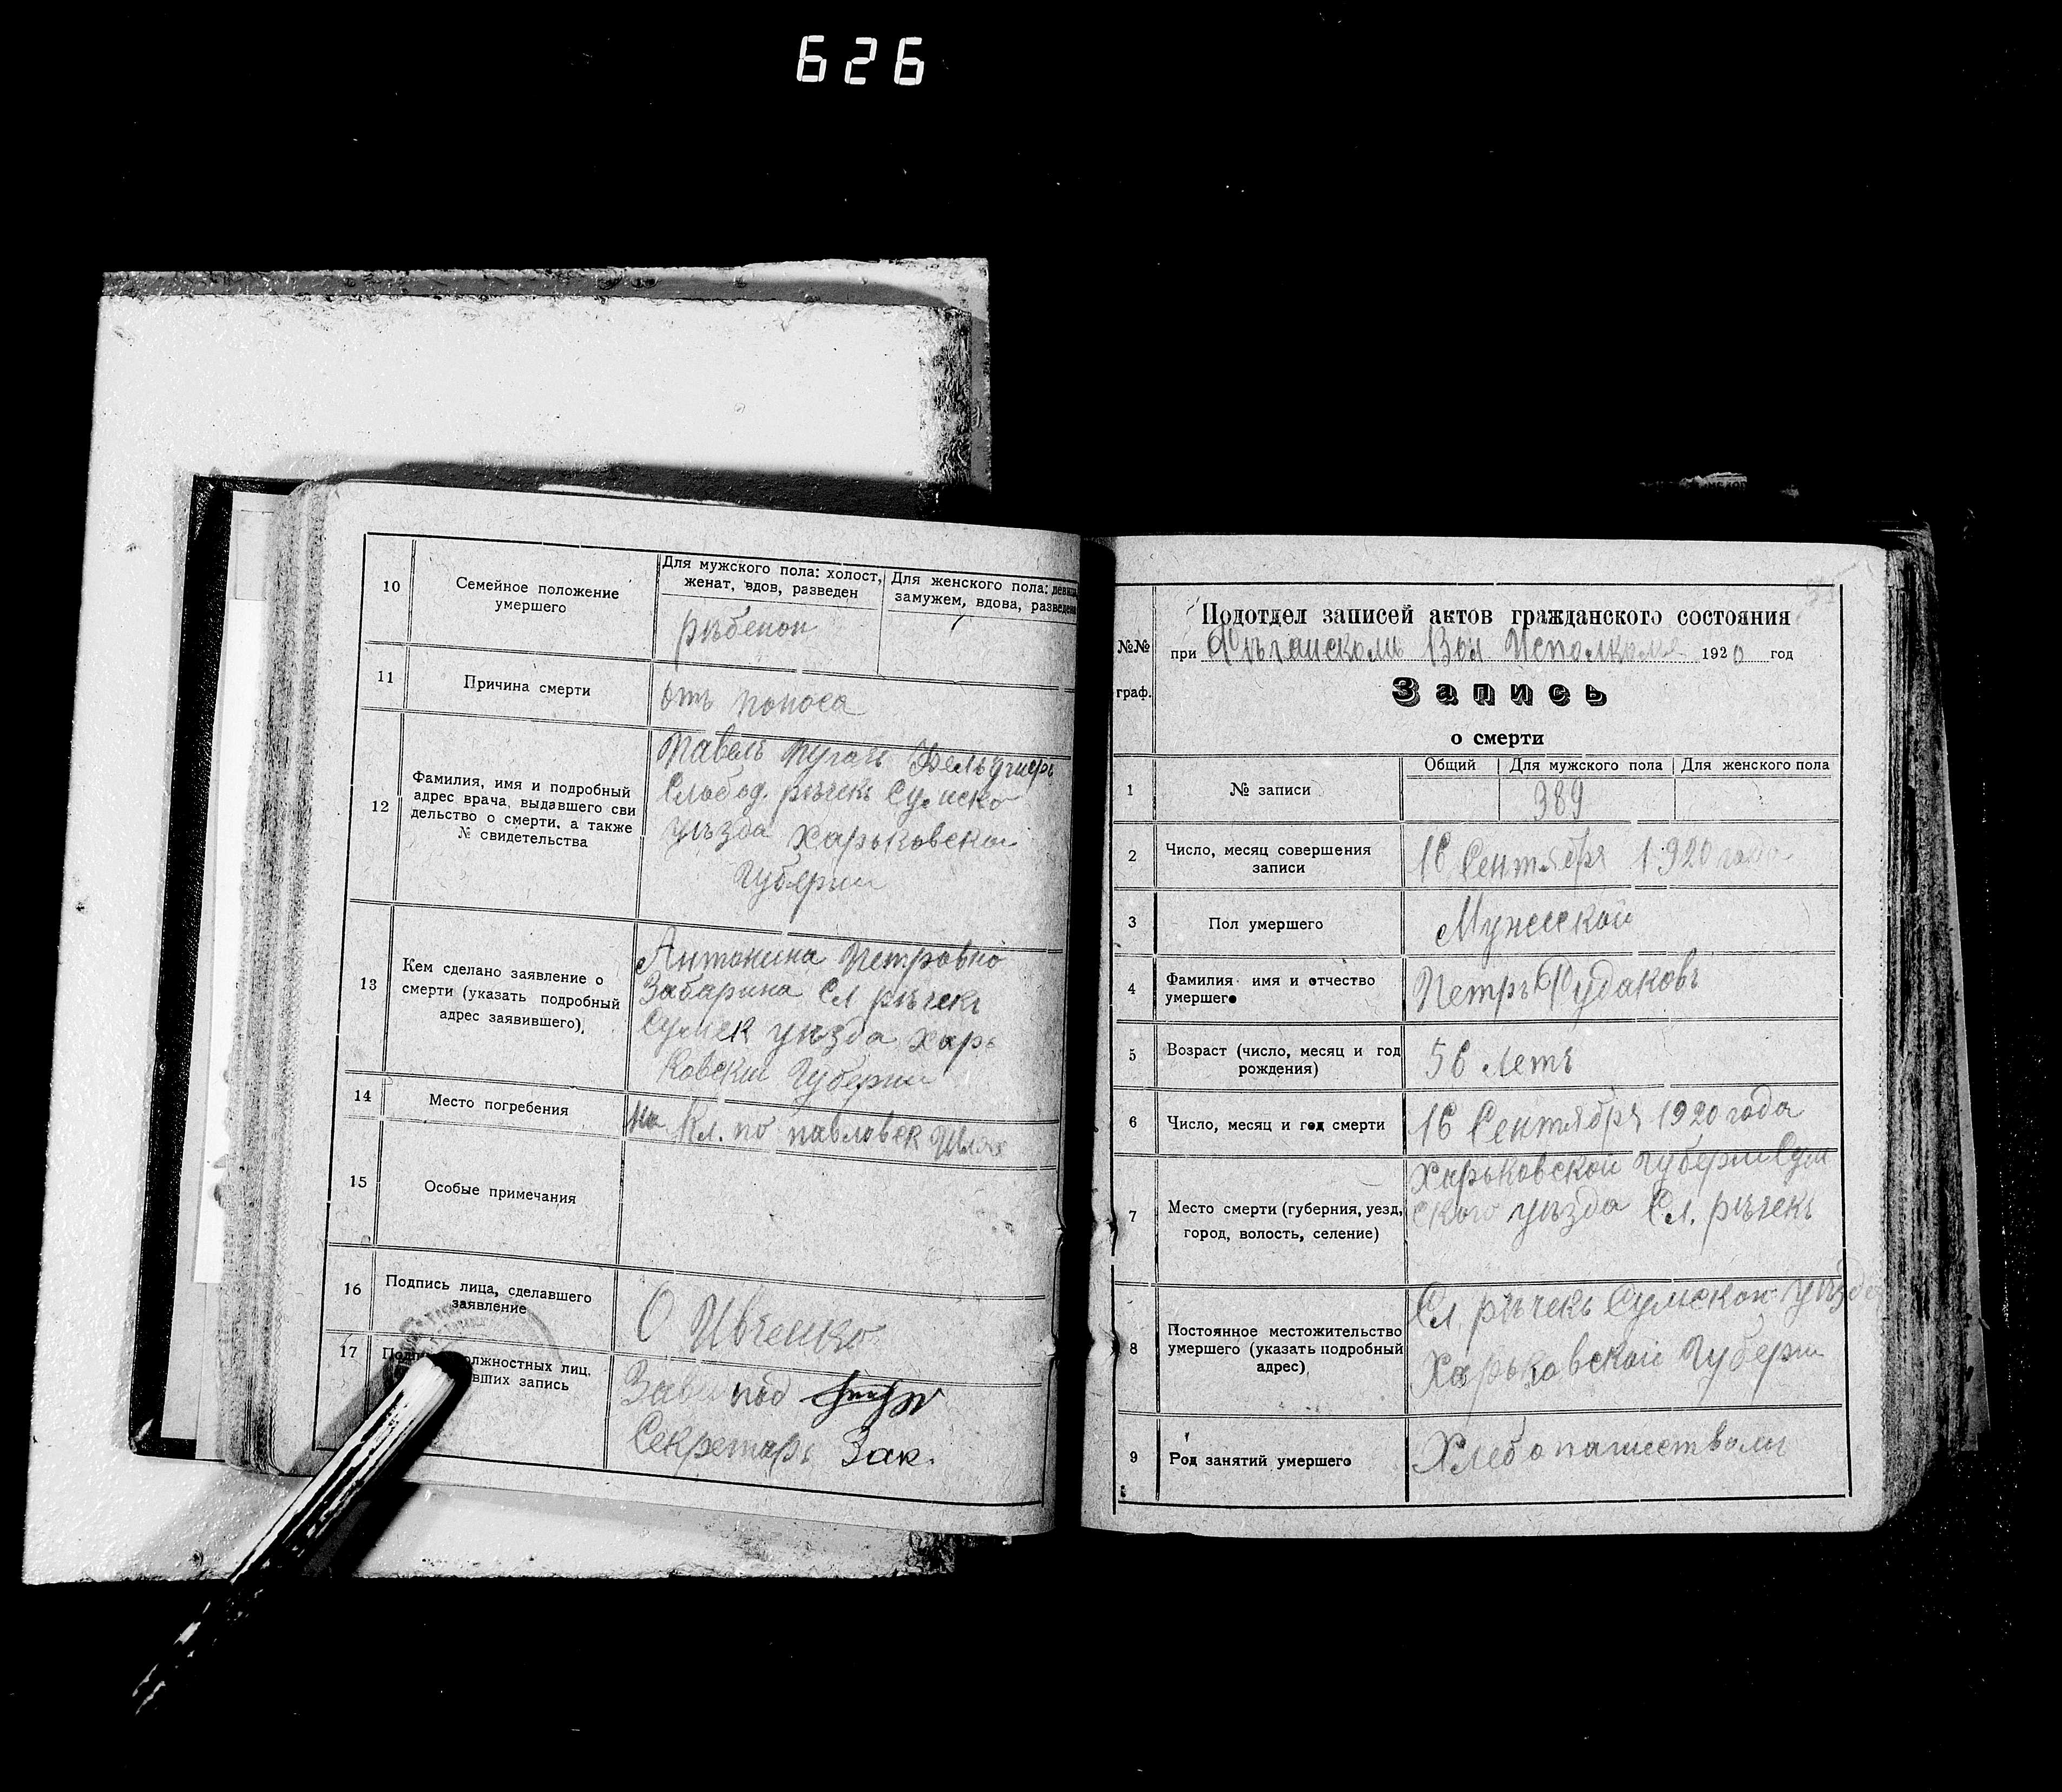 626
10
Семейное положение
умершего
Для мужского пола: холост,
женат, вдов, разведен
Для женского пола: девица,
замужем, вдова, разведена
рѣбенок
11
Причина смерти
отъ поноса
12
Фамилия, имя и подробный
адрес врача, выдавшего сви
дельство о смерти, а также
№ свидетельства
Павелъ Пугачъ Фельдшеръ
Слобод. рѣчекъ Сумско
уѣзда Харьковской
Губерни
13
Кем сделано заявление о
смерти (указать подробный
адрес заявившего).
Антонина Петровно
Забарина Сл рѣчекъ
Сумск уѣзда Харь
ковски Губерни
14
Место погребения
на Кл. по павловск
15
Особые примечания
16
Подпись лица, сделавшего
заявление
О Ивченко
17
должностных лиц,
вших запись
Зав под
Секретарь Зак.
№№
граф.
Подотдел записей актов гражданского состояния
при Рѣчанскомъ Вол. Исполкоме 1920 год
Запись
о смерти
1
№ записи
Общий
Для мужского пола
Для женского пола
389
2
Число, месяц совершения
записи
16 Сентября 1920 года
3
Пол умершего
Мужеской
4
Фамилия имя и отчество
умершего
Петръ Рудаковъ
5
Возраст (число, месяц и год
рождения)
56 летъ
6
Число, месяц и год смерти
16 Сентября 1920 года
7
Место смерти (губерния, уезд,
город, волость, селение)
Харьковской Губерни Сум
ского уѣзда Сл. рѣчекъ
8
Постоянное местожительство
умершего (указать подробный
адрес)
Сл. рѣчекъ Сумской уѣзда
Харьковской Губерни
9
Род занятий умершего
Хлебопашествомъ